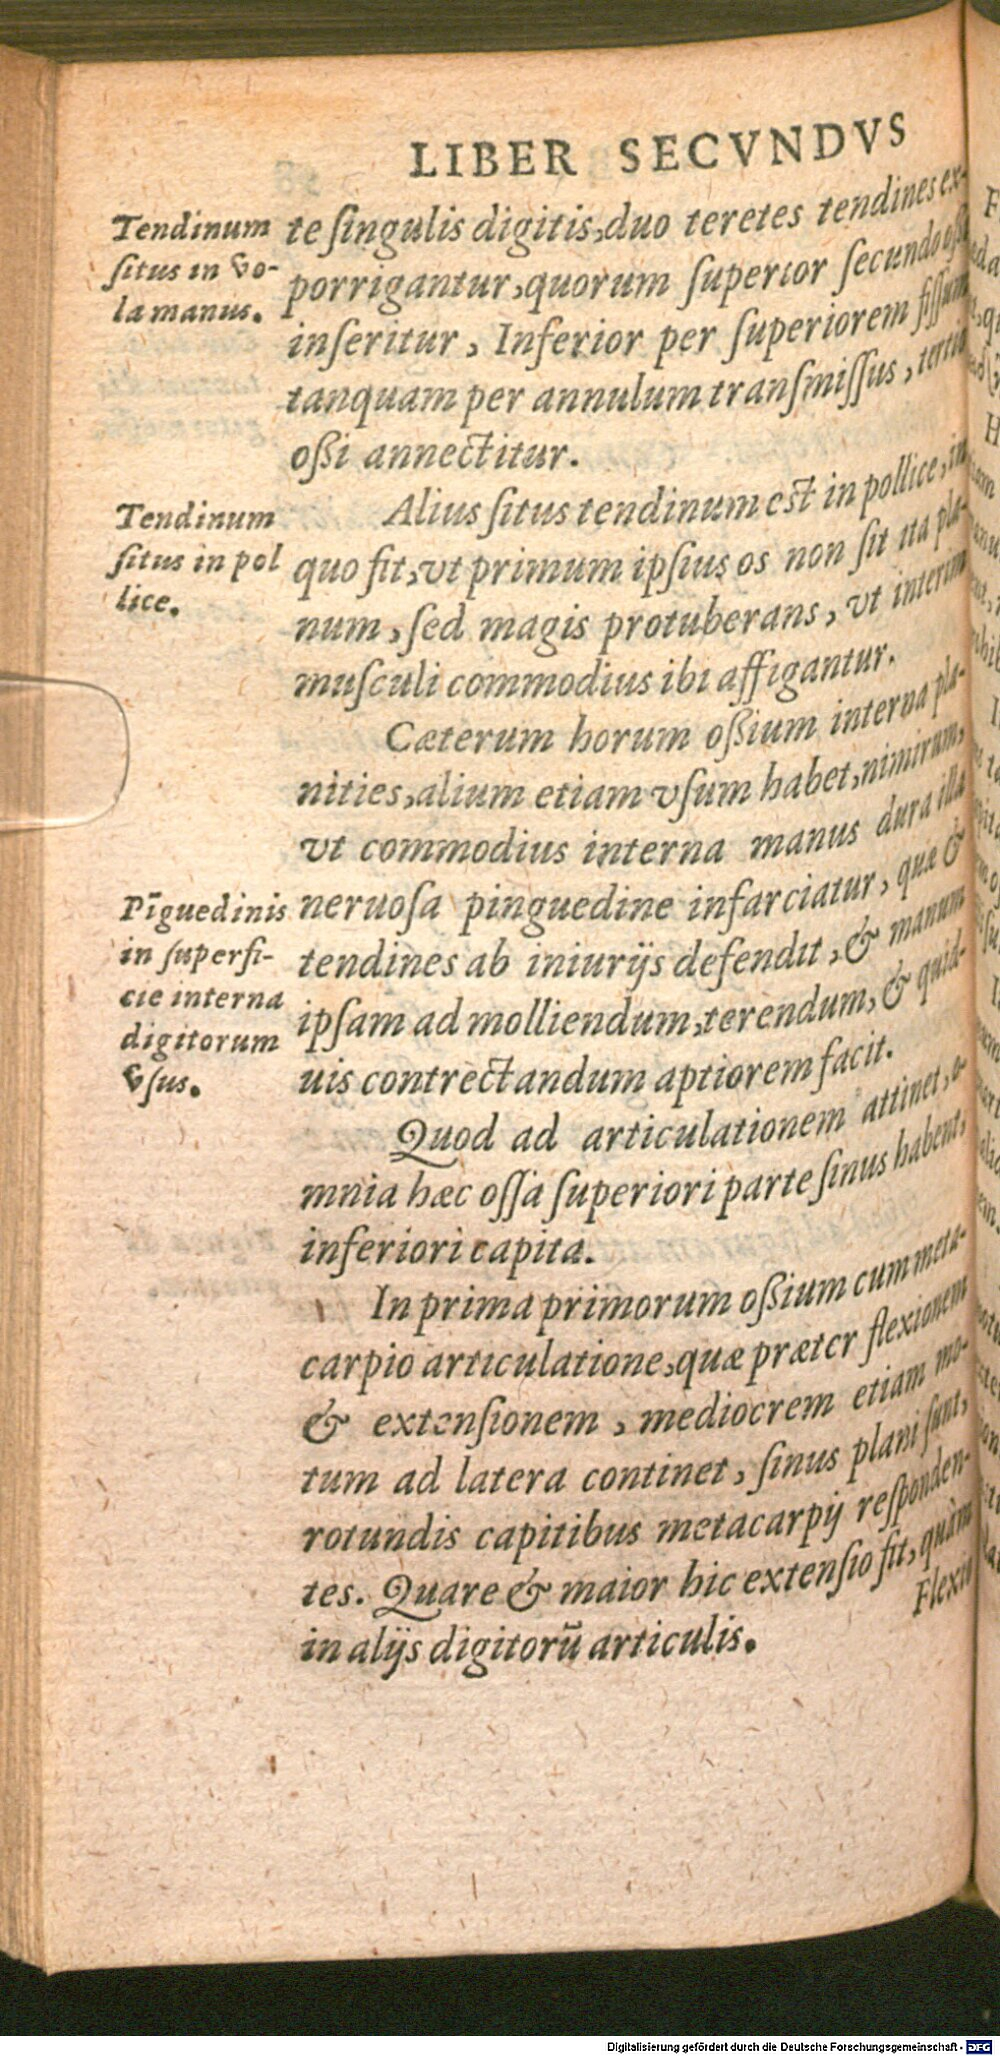 LIBER SECVNDVS
Tendinum
ſitus in vo-
la manus.
te ſingulis digitis, duo teretes tendines ex-
porrigantur, quorum ſuperior ſecundo oſſi
inſeritur, Inferior per ſuperiorem fiſſum
tanquam per annulum tranſmiſſus, tertio
oßi annectitur.
Tendinum
ſitus in pol
lice.
Alius ſitus tendinum est in pollice, in
quo fit, vt primum ipſius os non ſit ita pla-
num, ſed magis protuberans, vt interim
muſculi commodius ibi affigantur.
Cæterum horum oßium interna pla-
nities, alium etiam vſum habet, nimirum,
vt commodius interna manus dura illa
Pīguedinis
in ſuperfi-
cie interna
digitorum
vſus.
neruoſa pinguedine infarciatur, quæ &
tendines ab iniurijs defendit, & manum
ipſam ad molliendum, terendum, & quid-
uis contrectandum aptiorem facit.
Quod ad articulationem attinet, o-
mnia hæc oſſa ſuperiori parte ſinus habent,
inferiori capita.
In prima primorum oßium cum meta-
carpio articulatione, quæ præter flexionem
& extenſionem, mediocrem etiam mo-
tum ad latera continet, ſinus plani ſunt,
rotundis capitibus metacarpij reſponden-
tes. Quare & maior hic extenſio fit, quàm
in alijs digitorū articulis.
Flexio
Digitalisierung gefördert durch die Deutsche Forschungsgemeinschaft - DFG